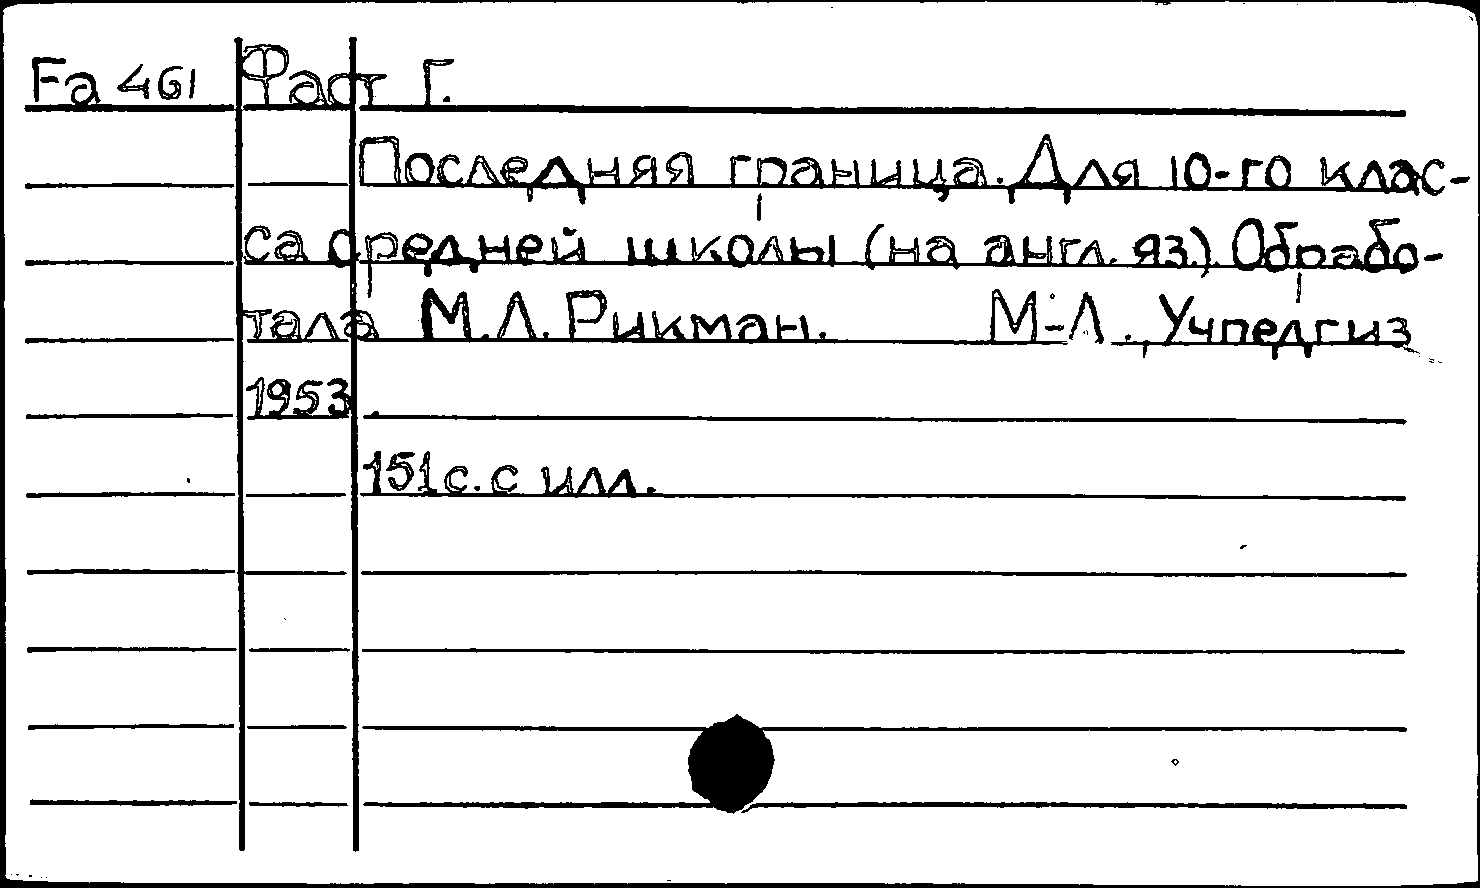 Fa 461 Фаст Г.
Последняя граница. Для 10-го клас-
са средней школы (на англ. яз.) Обрабо-
тала М.Л. Рикман. М-Л., Учпедгиз
1953.
151 с. с илл.